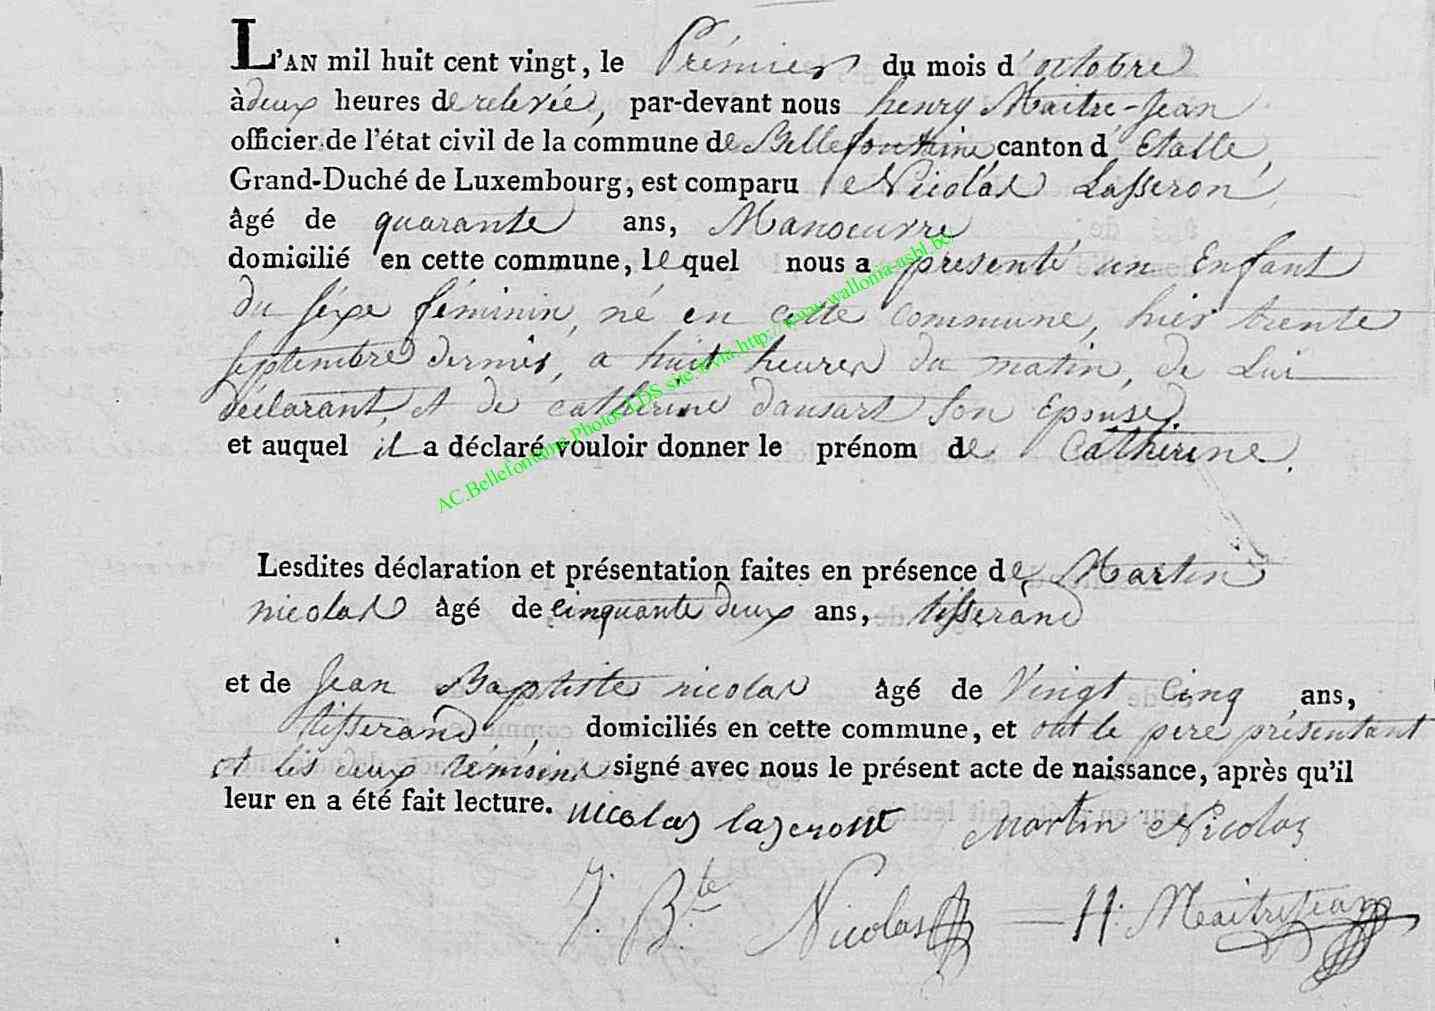 L'AN mil huit cent vingt, le Prémier du mois d'octobre
à deux heures de relevée, par-devant nous henry Maitre-Jean
officier de l'état civil de la commune de Bellefontaine, canton d'Etalle,
Grand-Duché de Luxembourg, est comparu le Nicolas Lasseron,
âgé de quarante ans, Manoeuvre
domicilié en cette commune, lequel nous a présenté un Enfant
du séxe féminin, né en cette commune, hier trente
septembre dernier, a huit heures du matin, de Lui
déclarant, et de catherine dausart son Epouse,
et auquel il a déclaré vouloir donner le prénom de Catherine.
AC.Bellefontaine Photos LDS site via http://www.wallonia-asbl.be/
Lesdites déclaration et présentation faites en présence de Martin
nicolas âgé de cinquante deux ans, tisserand
et de Jean Baptiste nicolas âgé de Vingt Cinq ans,
tisserand, domiciliés en cette commune, et ont le pere présentant
et les deux témoins signé avec nous le présent acte de naissance, après qu'il
leur en a été fait lecture. nicolas laseront Martin Nicolas
J. B.te Nicolas H. Maitrejean